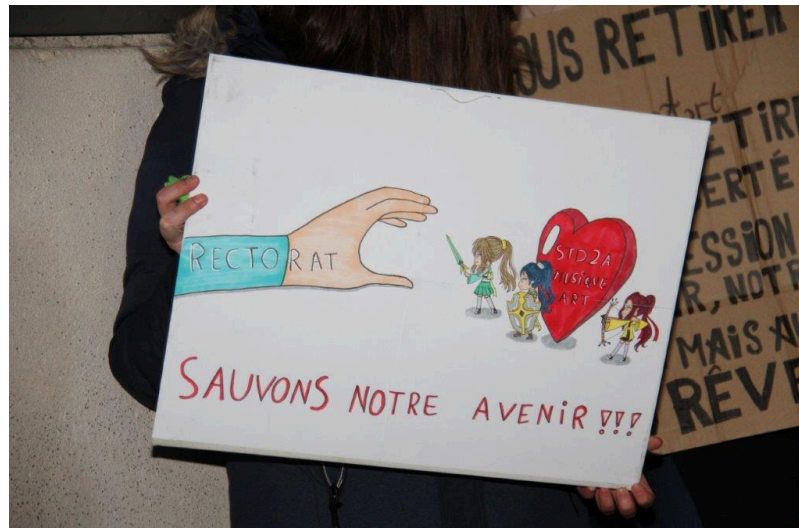 RECTORAT
STD2A
MUSIQUE
ART
SAUVONS NOTRE AVENIR !!!
OUS RETIRER
ETIR
ERTÉ
ESSION
R, NOT
MAIS A
RÊVE